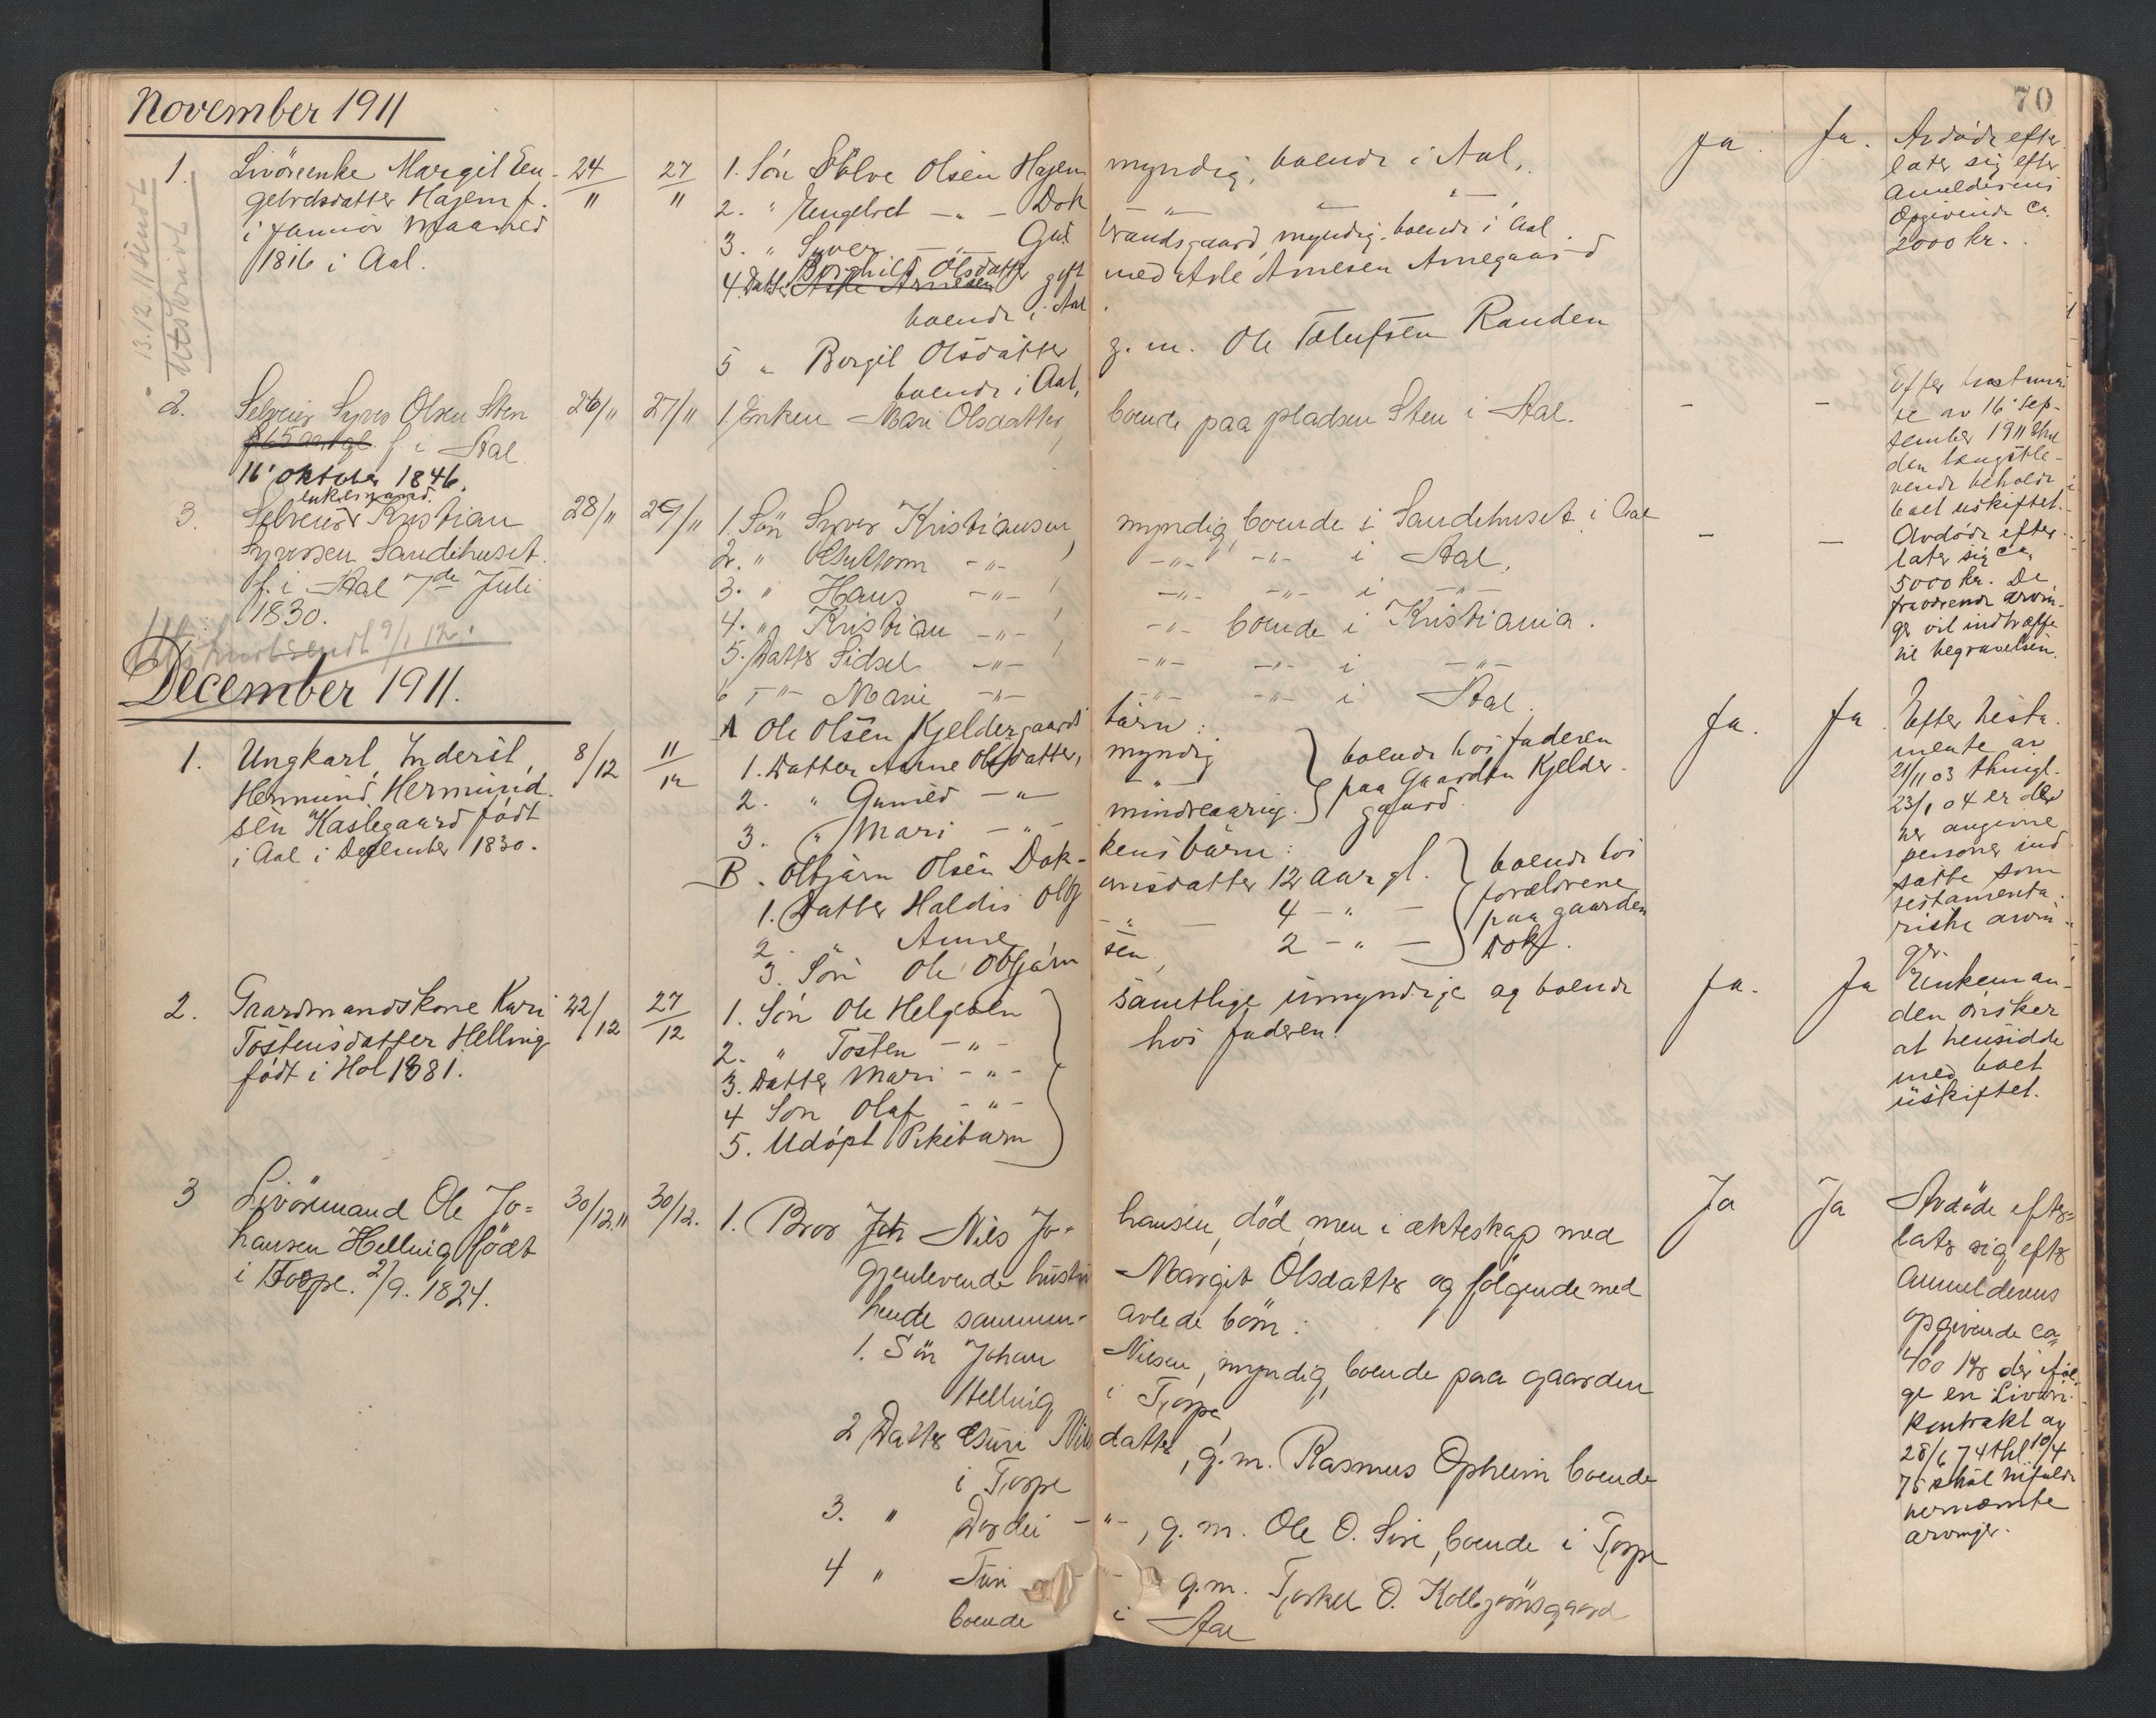 70
November 1911
1. Livörenke Margit En-
gebretsdatter Hagem f.
i Januar Maaned
1816 i Aal.
24/11 27/11
1. Sön Sölve Olsen Hagem myndig, boende i Aal.
2. " Engebret — " — Dok — " — " — " —
3. " Syver — " — Gul brandsgaard, myndig, boende i Aal.
4. Datter Borghild Olsdatter gift med Asle Arnesen Arnegaard
boende i Aal
5 " Borgil Olsdatter g. m. Ole Tolufsen Randen
boende i Aal,
Ja Ja.
Avdöde efter
later sig efter
Anmelderens
Opgivende ca.
2000 kr.
13.12.11 sendt
Utskrift
2. Selveier Syver Olsen Sten
f. i Aal
16' oktober 1846.
26/11 27/11
1. Enken Mari Olsdatter, boende paa pladsen Sten i Aal.
– –
Efter testamen
te av 16' sep-
tember 1911 skal
den længstle-
vende beholde
boet uskiftet.
3. Selveier enkemand Kristian
Syversen Sandehuset
f. i Aal 7de Juli
1830.
28/11 29/11
1. Sön Syver Kristiansen, myndig, boende i Sandehuset i Aal
2. " Guttorm — " —, — " — — " — i Aal,
3. " Hans — " — , — " — — " — i — " —
4. " Kristian — " — , — " — boende i Kristiania.
5. Datter Sidsel — " — , — " — — " — i — " —
6 — " — Mari — " — — " — — " — i Aal.
– –
Avdöde efter
later sig ca.
5000 kr. De
fraværende arvin-
ger vil indtræffe
til begravelsen.
Utskrift sendt 9/1 12.
December 1911.
1. Ungkarl, Inderst,
Hermund Hermund
sen Kaslegaard født
i Aal i December 1830.
8/12 11/12
A Ole Olsen Kjeldergaards børn:
1. Datter Anne Olsdatter, myndig
2. " Gunild — " — — " —
3. " Mari — " — mindreaarig.
boende hos faderen
paa Gaarden Kjelder-
gaard.
B. Olbjørn Olsen Dok- kens børn:
1. Datter Haldis Olbj ørnsdatter 12 aar gl.
2. " Anne — " — 4 — " —
3. Søn Ole Olbjørn sen, 2 — " —
boende hos
forældrene
paa gaarden
Dok.
Ja. Ja
Efter testa-
mente av
21/11 03 thingl.
23/1 04 er de
her angivne
personer ind
satte som
testamenta-
riske arvin-
ger.
2. Gaardmandskone Kari
Tostensdatter Helling
født i Hol 1881.
22/12 27/12
1. Søn Ole Helgesen
2. " Tosten — " —
3. Datter Mari — " —
4 Søn Olaf — " —
5. Udöpt Pikebarn
samtlige umyndige og boende
hos faderen.
Ja. Ja
Enkeman-
den ønsker
at hensidde
med boet
uskiftet.
3 Livörmand Ole Jo-
hansen Helling født
i Torpe 2/9. 1824.
30/12 11 30/12.
1. Bror Nils Jo- hansen, död, men i ekteskap med
gjenlevende hustru Margit Olsdatter og følgende med
hende sammen- avlede börn:
1. Sön Johan Nilsen, myndig, boende paa gaarden
Helling i Torpe
2 Datter Guri Nils datter, g. m. Rasmus Opheim boende
i Torpe
3. " Dordei — " —, g. m. Ole O. Sire, boende i Torpe
4 " Turi — " — g. m. Torkel O. Kolbjørnsgaard
boende i Aal
Ja Ja
Avdöde efter-
later sig efter
Anmelderens
opgivende ca
400 kr der iföl-
ge en Livöri-
kontrakt av
28/6 74 thl. 10/4
75 skal tilfalde
hernæmte
arvinger.